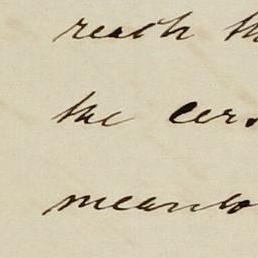 reach th
the cer
meando